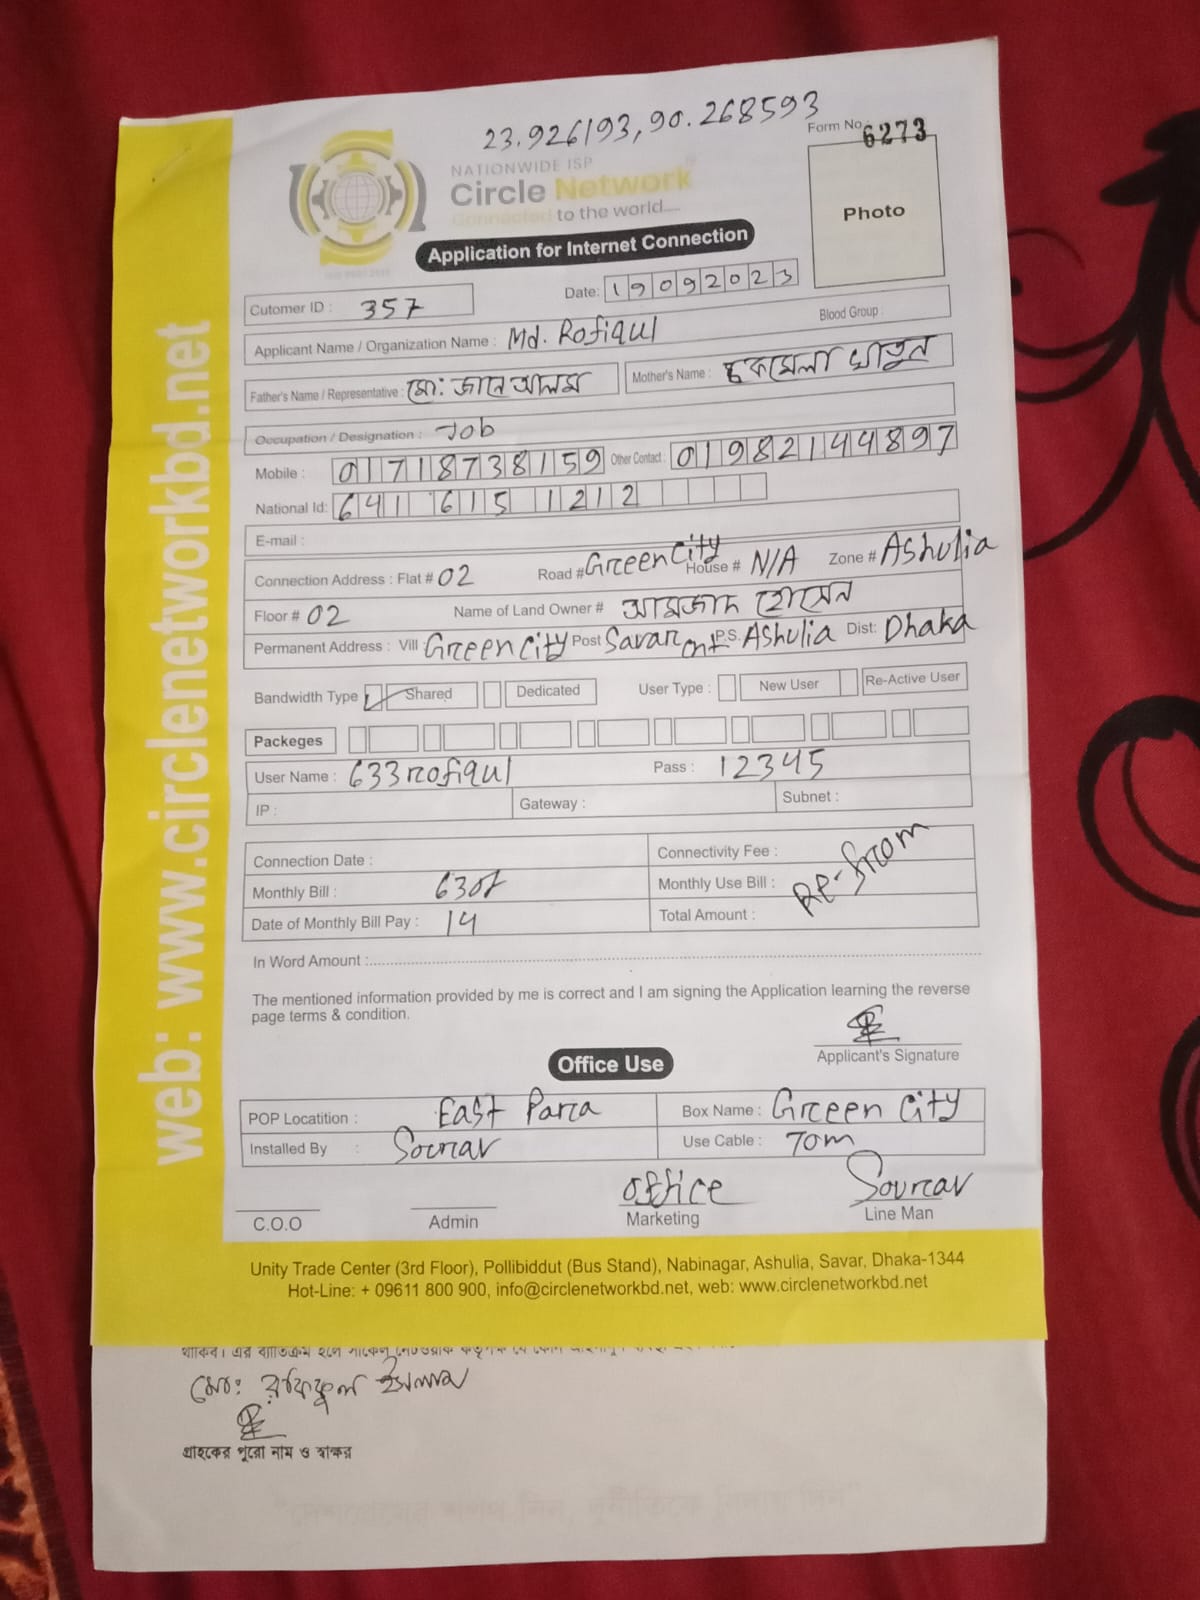 23.926193, 90.268593
Form No. 6273
NATIONWIDE ISP
Circle Network
Connected to the world....
Photo
Application for Internet Connection
Date: 19092023
Cutomer ID : 357
Applicant Name / Organization Name : Md. Rofiqul Blood Group :
Father's Name / Representative : মো: জানে আলম Mother's Name : হুকমেলা খাতুন
Occupation / Designation : Job
Mobile : 01718738159 Other Contact : 01982144897
National Id: 641 615 1212
E-mail :
Connection Address : Flat # 02 Road # Green City House # N/A Zone # Ashulia
Floor # 02 Name of Land Owner # আমজাদ হোসেন
Permanent Address : Vill Green City Post Savar Cnt P.S. Ashulia Dist: Dhaka
Bandwidth Type Shared Dedicated User Type : New User Re-Active User
Packeges
User Name : 633rofiqul Pass : 12345
IP : Gateway : Subnet :
Connection Date : Connectivity Fee :
Monthly Bill : 630৳ Monthly Use Bill : Re-from
Date of Monthly Bill Pay : 14 Total Amount :
In Word Amount :
The mentioned information provided by me is correct and I am signing the Application learning the reverse
page terms & condition.
Applicant's Signature
Office Use
POP Locatition : East Para Box Name : Green City
Installed By : Sourav Use Cable : 70m
C.O.O Admin Office Marketing Sourav Line Man
Unity Trade Center (3rd Floor), Pollibiddut (Bus Stand), Nabinagar, Ashulia, Savar, Dhaka-1344
Hot-Line: + 09611 800 900, info@circlenetworkbd.net, web: www.circlenetworkbd.net
web: www.circlenetworkbd.net
থাকিব। এর ব্যতিক্রম হলে
মোঃ রফিকুল ইসলাম
গ্রাহকের পুরো নাম ও স্বাক্ষর